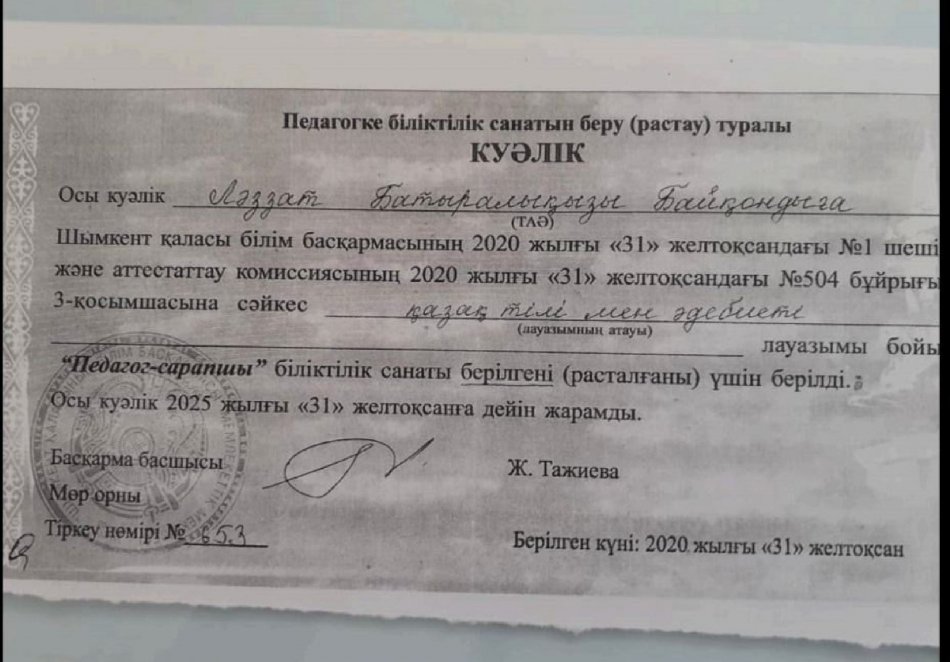 Педагогке біліктілік санатын беру (растау) туралы
КУӘЛІК
Осы куәлік Ләззат Батыралықызы Байқондыға
(ТАӘ)
Шымкент қаласы білім басқармасының 2020 жылғы «31» желтоқсандағы №1 шеші
және аттестаттау комиссиясының 2020 жылғы «31» желтоқсандағы №504 бұйрығы
3-қосымшасына сәйкес қазақ тілі мен әдебиеті
(лауазымның атауы)
лауазымы бойы
“Педагог-сарапшы” біліктілік санаты берілгені (расталғаны) үшін берілді.
Осы куәлік 2025 жылғы «31» желтоқсанға дейін жарамды.
Басқарма басшысы Ж. Тажиева
Мөр орны
Тіркеу нөмірі № 653
Берілген күні: 2020 жылғы «31» желтоқсан